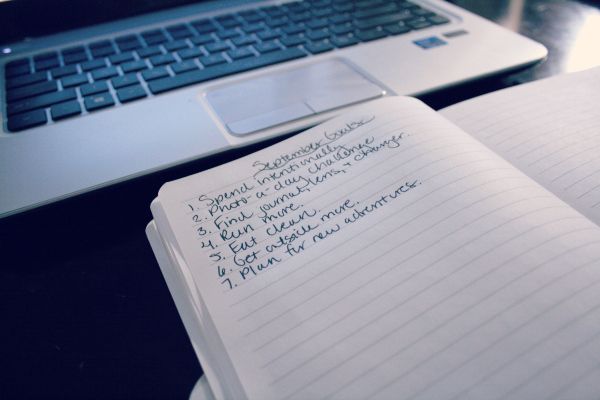 September Goals:
1. Spend intentionally
2. Photo-a-day challenge
3. Find journal, lens, + charger.
4. Run more.
5. Eat clean.
6. Get outside more.
7. Plan for new adventures.